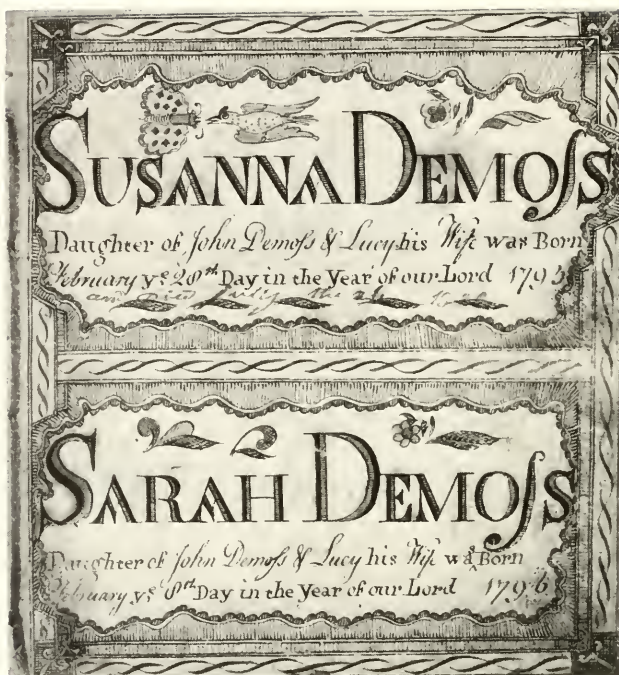 SUSANNA DEMOſS
Daughter of John Demoſs & Lucy his Wife was Born
February yᵉ 28ᵗʰ Day in the Year of our Lord 1793
and Died the
SARAH DEMOſS
Daughter of John Demoſs & Lucy his Wife was Born
February yᵉ 8ᵗʰ Day in the Year of our Lord 1796